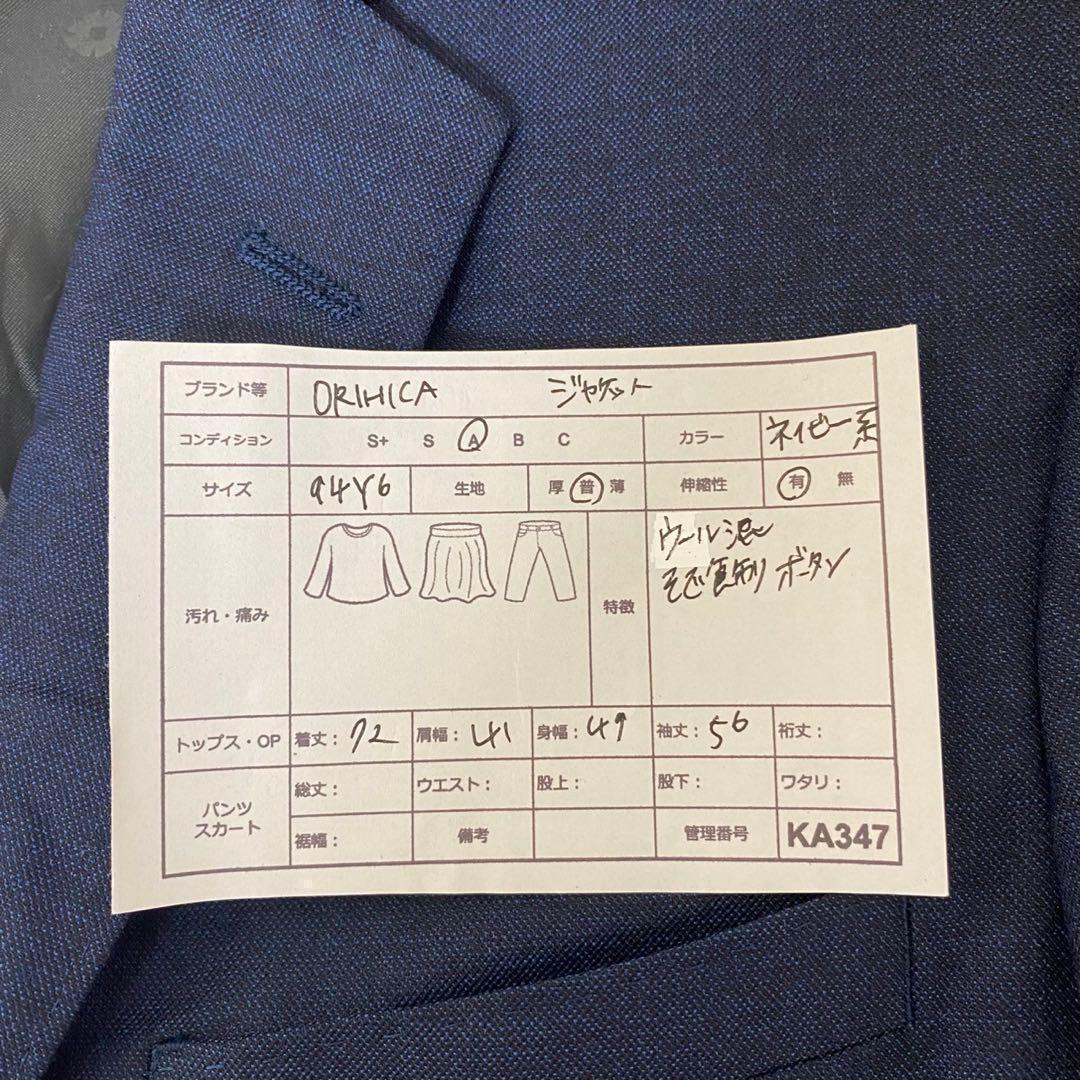 ブランド等 ORIHICA ジャケット
コンディション S+ S A B C カラー ネイビー系
サイズ 94Y6 生地 厚 普 薄 伸縮性 有 無
汚れ・痛み 特徴 ウール混
ボタン
トップス・OP 着丈: 72 肩幅: 41 身幅: 49 袖丈: 56 裄丈:
パンツ スカート 総丈: ウエスト: 股上: 股下: ワタリ:
裾幅: 備考 管理番号 KA347